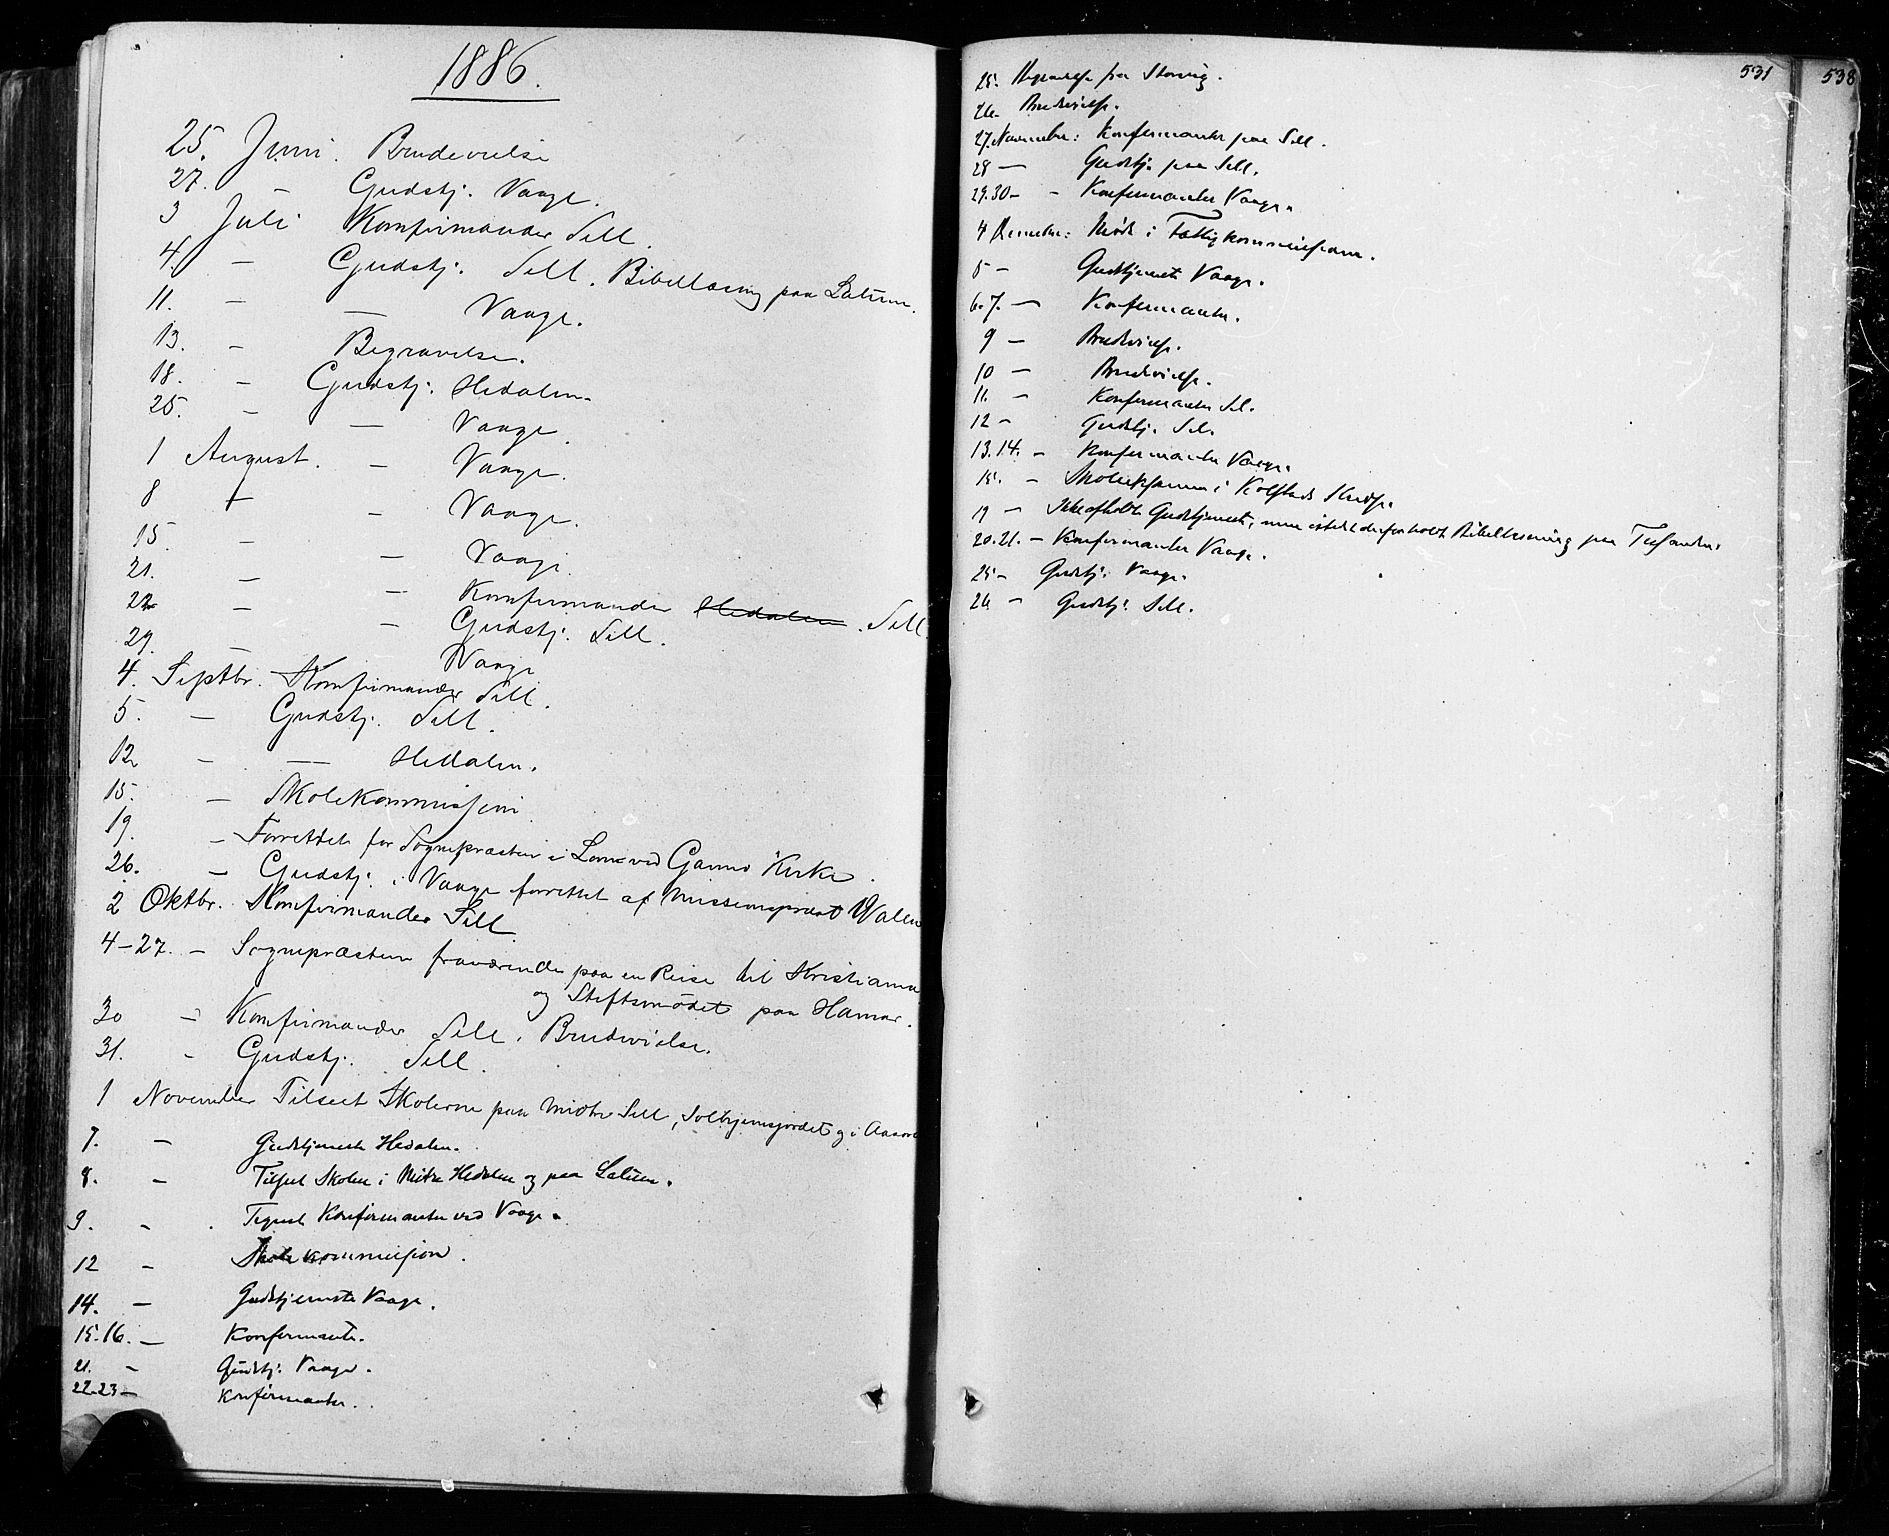 1886.
25. Juni. Brudevielse
27. — Gudstj. Vaage.
3 Juli Konfirmander Sell.
4. — Gudstj. Sell. Bibellæsning paa Laluum.
11. — — Vaage.
13. — Begravelse.
18. — Gudstj. Hedalen.
25. — — Vaage.
1 August. — Vaage.
8 — — Vaage.
15. — — Vaage.
21. — — Konfirmander Hedalen. Sell
22 — — Gudstj. Sell.
29. — Vaage
4. Septbr. Konfirmander Sell.
5. — Gudstj. Sell.
12 — — Hedalen.
15. — Skolekommissjon
19. — Forrettet for Sognepræsten i Lom ved Garmo Kirke.
26. — Gudstj. i Vaage forrettet af Missionsprest Walen
2 Oktbr. Konfirmander Sell
4-27. — Sognepræsten fraværende paa en Reise til Kristiania
og Stiftsmödet paa Hamar.
30 — Konfirmander Sell. Brudevielse.
31. — Gudstj. Sell.
1 November Tilseet Skolerne paa Midtre Sell, Solhjemsjordet og i
7. — Gudstjeneste Hedalen.
8. — Tilseet Skolen i Midtre Hedalen og paa Laluum.
9. — Konfirmanter ved Vaage.
12 — Skolekommission.
14. — Gudstjeneste Vaage.
15.16. — Konfirmanter.
21. — Gudstj. Vaage.
22.23 — Konfirmanter.
531
538
25. Begravelse fra
26. Brudevielse.
27. November: Konfirmanter paa Sell.
28 — Gudstj. paa Sell.
29.30 — - Konfirmanter Vaage.
4 December: Møde i Fattigkommissionen.
5 — Gudstjeneste Vaage.
6.7. — Konfirmanter.
9 — Brudevielse.
10 — Brudevielse.
11. — Konfirmanter Sel.
12 — Gudstj. Sel.
13.14. — Konfirmanter Vaage.
15. — Skoleeksamen i Kolstads Kreds.
19 — Ikke afholdt Gudstjeneste, men istedetderfor holdt Bibellæsning paa
20.21. — Konfirmanter Vaage.
25 — Gudstj. Vaage.
26 — Gudstj. Sell.